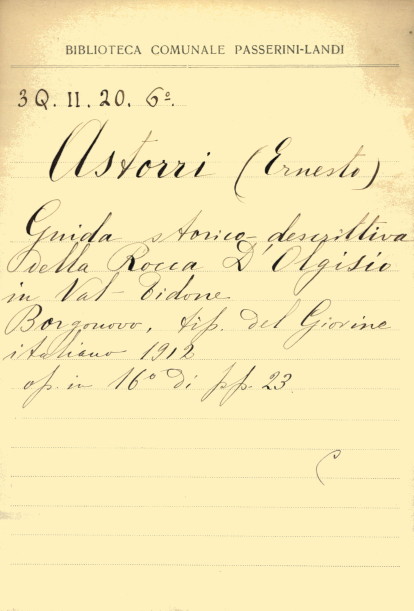 BIBLIOTECA COMUNALE PASSERINI-LANDI
3Q. II. 20. 6º.
Astorri (Ernesto)
Guida storico-descrittiva
della Rocca D'Olgisio
in Val-Tidone
Borgonovo, tip. del Giovine
italiano 1912
op. in 16º di pp. 23.